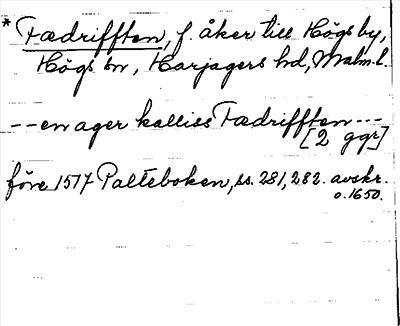 * Fædrifften, f. åker till Högs by,
Högs sn, Harjagers hd, Malm.l.
-- en ager kalliss Fædrifften ---
[2 ggr]
före 1517 Palteboken, ss. 281, 282. avskr.
o. 1650.